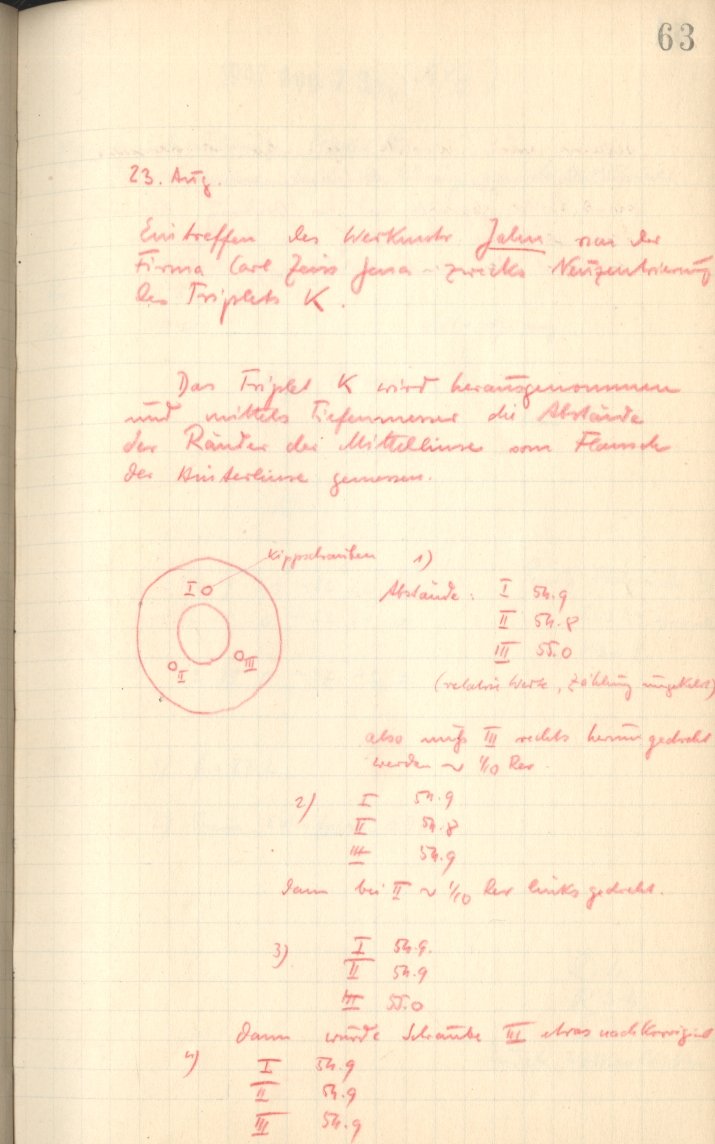 63
23. Aug.
Eintreffen des Werkmstr Jahn von der
Firma Carl Zeiss Jena - zwecks Neuzentrierung
des Triplets K.
Das Triplet K wird herausgenommen
und mittels Tiefenmesser die Abstände
der Ränder der Mittellinse vom Flansch
der Hinterlinse gemessen.
Kippschrauben
I
II
III
1)
Abstände: I 54.9
II 54.8
III 55.0
(relative Werte, Zählung umgekehrt)
also muß III rechts herum gedreht
werden ~ 1/10 Rev.
2) I 54.9
II 54.8
III 54.9
dann bei II ~ 1/10 Rev links gedreht.
3) I 54.9.
II 54.9
III 55.0
dann wurde Schraube III etwas nachkorrigiert
4) I 54.9
II 54.9
III 54.9